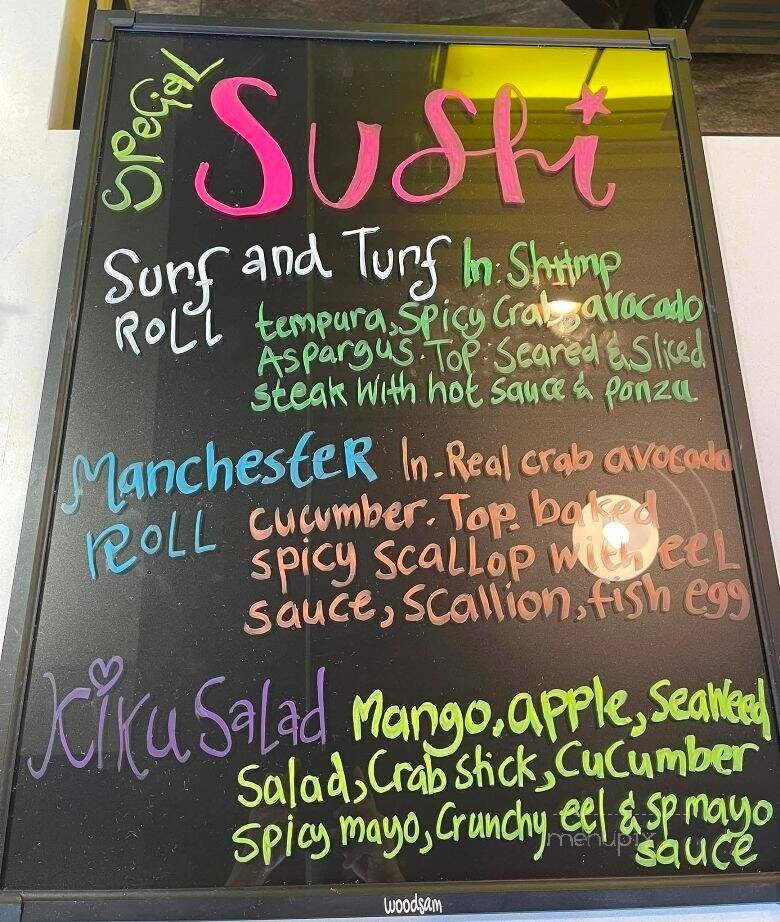 Special Sushi
Surf and Turf In: Shrimp
Roll tempura, Spicy Crab, avocado
Aspargus. Top: Seared & Sliced
steak with hot sauce & ponzu
Manchester In. Real crab avocado
Roll cucumber. Top. baked
spicy scallop with eel
sauce, scallion, fish egg
Kiku Salad Mango, apple, Seaweed
Salad, Crab stick, Cucumber
spicy mayo, Crunchy eel & sp mayo
sauce
menupix
woodsam